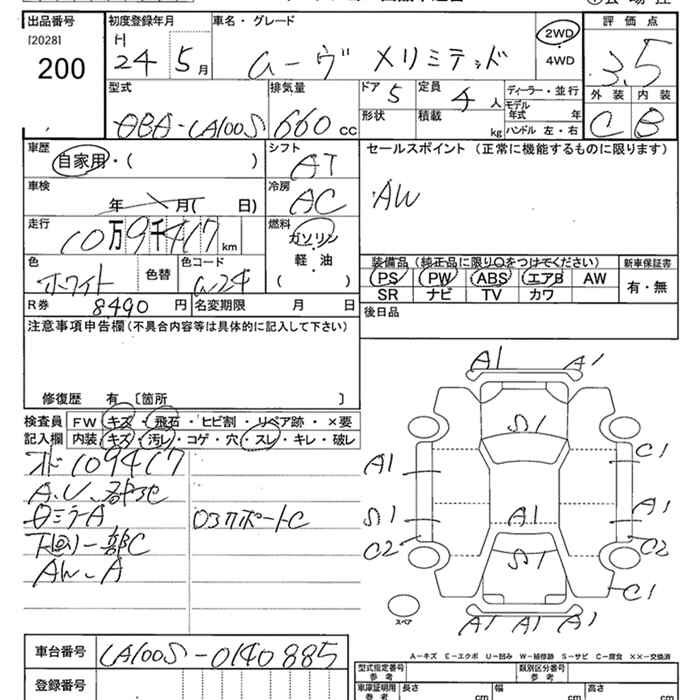 出品番号
[2028]
200
初度登録年月
H
24 5 月
車名・グレード
ムーヴ メリミテッド
2WD
4WD
評価点
3.5
外装 内装
C B
型式
DBA-LA100S
排気量
660 cc
ドア 5
形状
定員 4 人
積載 kg
ディーラー・並行
モデル
年式 年
ハンドル 左・右
車歴
自家用・( )
シフト
AT
セールスポイント (正常に機能するものに限ります)
AW
車検
年 月( 日)
冷房
AC
走行
10万9千417 km
燃料
ガソリン
軽・油
( )
色
ホワイト
色替
色コード
W24
装備品 (純正品に限り○をつけてください)
新車保証書
PS PW ABS エアB AW
有・無
SR ナビ TV カワ
R券 8490 円
名変期限 月 日
後日品
注意事項申告欄(不具合内容等は具体的に記入して下さい)
修復歴 有 [箇所 ]
検査員
記入欄
FW キズ・飛石・ヒビ割・リペア跡・×要
内装 キズ・汚レ・コゲ・穴・スレ・キレ・破レ
109417
A.U
下回り一部C
AW-A
コアサポートC
A1 A1
A1
C1
A1
A1
A1
C2
C2
C1
A1 A1 A1
スペア
A-キズ E-エクボ U-凹み W-補修跡 S-サビ C-腐食 ××-交換済
車台番号
LA100S-0140885
登録番号
型式指定番号
参考
類別区分番号
参考
車庫証明用
参考
長さ cm
幅 cm
高さ cm